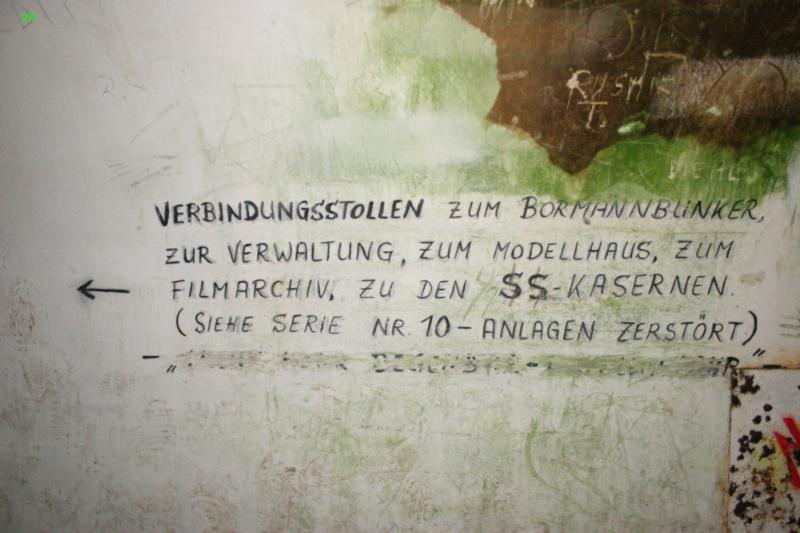 RUSH
T.
DIEHL
VERBINDUNGSSTOLLEN ZUM BORMANNBUNKER,
ZUR VERWALTUNG, ZUM MODELLHAUS, ZUM
FILMARCHIV, ZU DEN SS-KASERNEN.
← (SIEHE SERIE NR. 10 - ANLAGEN ZERSTÖRT)